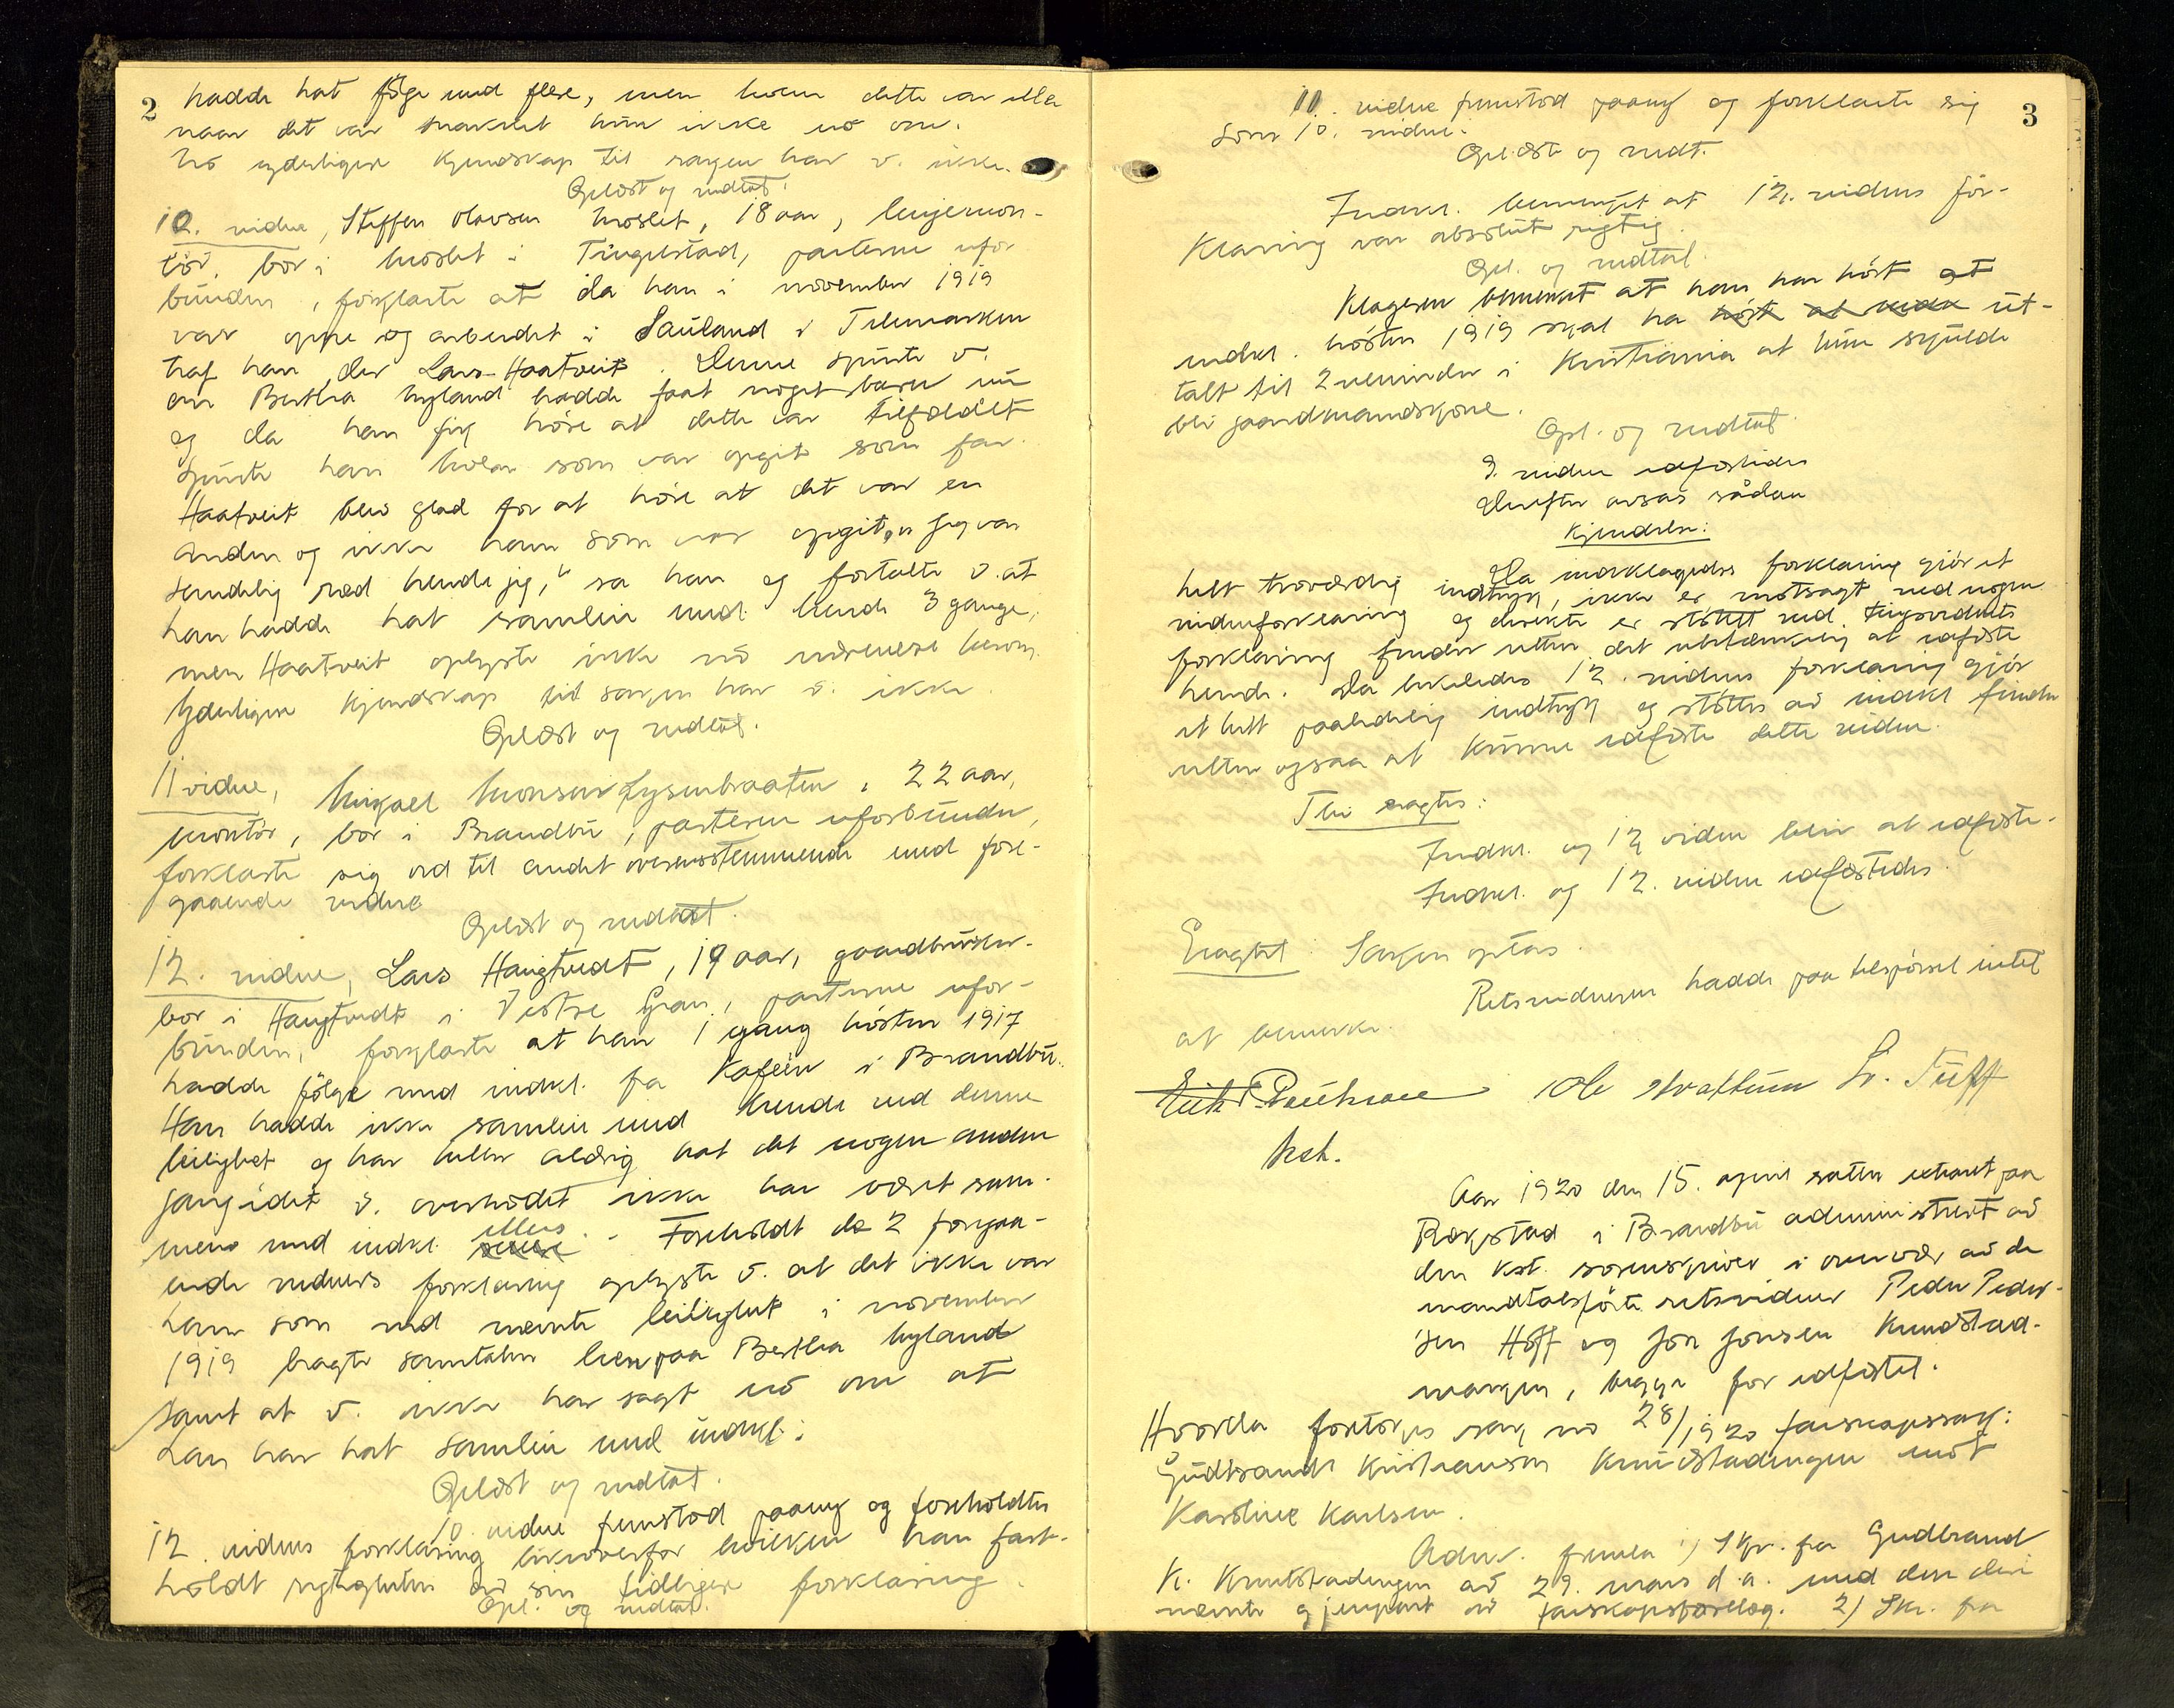 2
hadde hat følge med flere, men hvem dette var eller
naar det var snakket hun ikke no om.
No yderligere kjendskap til sagen har v. ikke.
Oplæst og vedtat.
10. vidne, Steffen Olavsen Moslet, 18 aar, linjemon-
tør, bor i Moslet i Tingelstad, parterne ufor
bunden, forklarte at da han i november 1919
var oppe og arbeidet i Sauland i Telemarken
traf han der Lars Haatveit. Denne spurte v.
om Bertha Myland hadde faat noget barn nu
og da han fik høre at dette var tilfældet
spurte han hvem som var opgit som far.
Haatveit blev glad for at høre at det var en
anden og ikke ham som var opgit, "Jeg var
sandelig ræd hende jeg," sa han og fortalte v. at
han hadde hat samleie med hende 3 gange,
men Haatveit oplyste ikke no nærmere herom.
Yderligere kjendskap til sagen har v. ikke.
Oplæst og vedtat.
11 vidne, Mikael Monsen Lysenbraaten, 22 aar,
montør, bor i Brandbu, parterne uforbunden,
forklarte sig ord til andet overensstemmende med fore-
gaaende vidne
Oplæst og vedtat.
12. vidne, Lars Haugtvedt, 19 aar, gaardbruker.
bor i Haugtvedt i Vestre Gran, parterne ufor-
bunden, forklarte at han 1 gang høsten 1917
hadde følge med indkl. fra Kafeen i Brandbu.
Han hadde ikke samleie med hende ved denne
leilighet og har heller aldrig hat det nogen anden
gang idet v. overhodet ikke har været sam-
mens med indkl. ellers. - Foreholdt de 2 forgaa-
ende vidners forklaring oplyste v. at det ikke var
ham som ved nævnte leilighet i november
1919 bragte samtalen hen paa Bertha Myland
samt at v. ikke har sagt no om at
han har hat samleie med indkl.
Oplæst og vedtat.
10. vidne fremstod paany og foreholdtes
12. vidnes forklaring likeoverfor hvilken han fast-
holdt rigtigheten av sin tidligere forklaring.
Opl. og vedtat.
3
11. vidne fremstod paany og forklarte sig
som 10. vidne.
Oplæst og vedt.
Indkl. bemerket at 12. vidnes for-
klaring var absolut rigtig.
Opl. og vedtat.
Klageren bemerket at han har hørt at
indkl. høsten 1919 skal ha hørt at ut-
talt til 2 veninder i Kristiania at hun skulde
bli gaardmandskone.
Opl. og vedtat.
9. vidne edfæstedes
Derefter avsas sådan
Kjendelse:
Da indklagedes forklaring gjør et
helt troværdig indtryk, ikke er motsagt ved nogen
vidneforklaring og direkte er støttet ved tingvidnets
forklaring finder retten det ubetænkelig at edfæste
hende. Da likeledes 12. vidnes forklaring gjør
et helt paalidelig indtryk og støttes av indkl finder
retten ogsaa at kunne edfæste dette vidne.
Thi eragtes:
Indkl. og 12 vidne blir at edfæste.
Indkl. og 12. vidne edfæstedes.
Eragtet: Sagen optas.
Retsvidnerne hadde paa tilspørsel intet
at bemerke.
Ole
Kst.
Aar 1920 den 15. april sattes extraret paa
Røkstad i Brandbu administrert av
den kst. sorenskriver i overvær av de
mandtalsførte retsvidner Peder Peder-
sen Hoff og Jon Jonsen Knudstad-
wangen, begge før edfæstet.
Hvorda foretokes sak no 28/1920 farskapssak:
Gudbrand Kristiansen Knudstadengen mot
Karoline Karlsen.
Adm. fremla 1) Skr. fra Gudbrand
K. Knutstadengen av 29. mars d.a. med den deri
nævnte gjenpart av farskapsforelæg. 2) Skr. fra